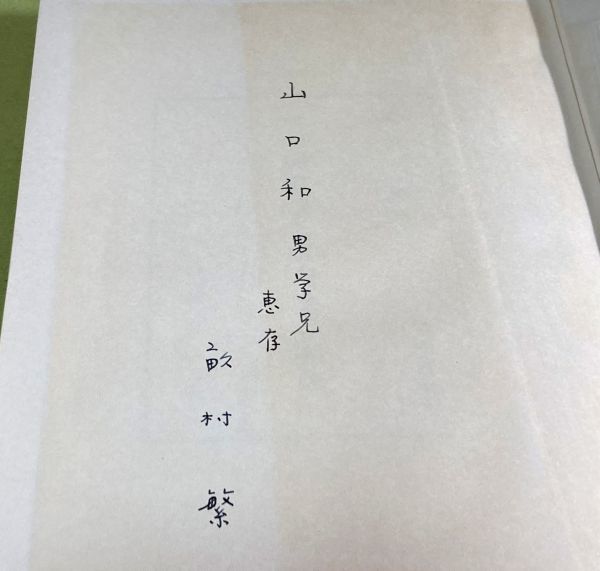 山口和男学兄
惠存
畝村繁